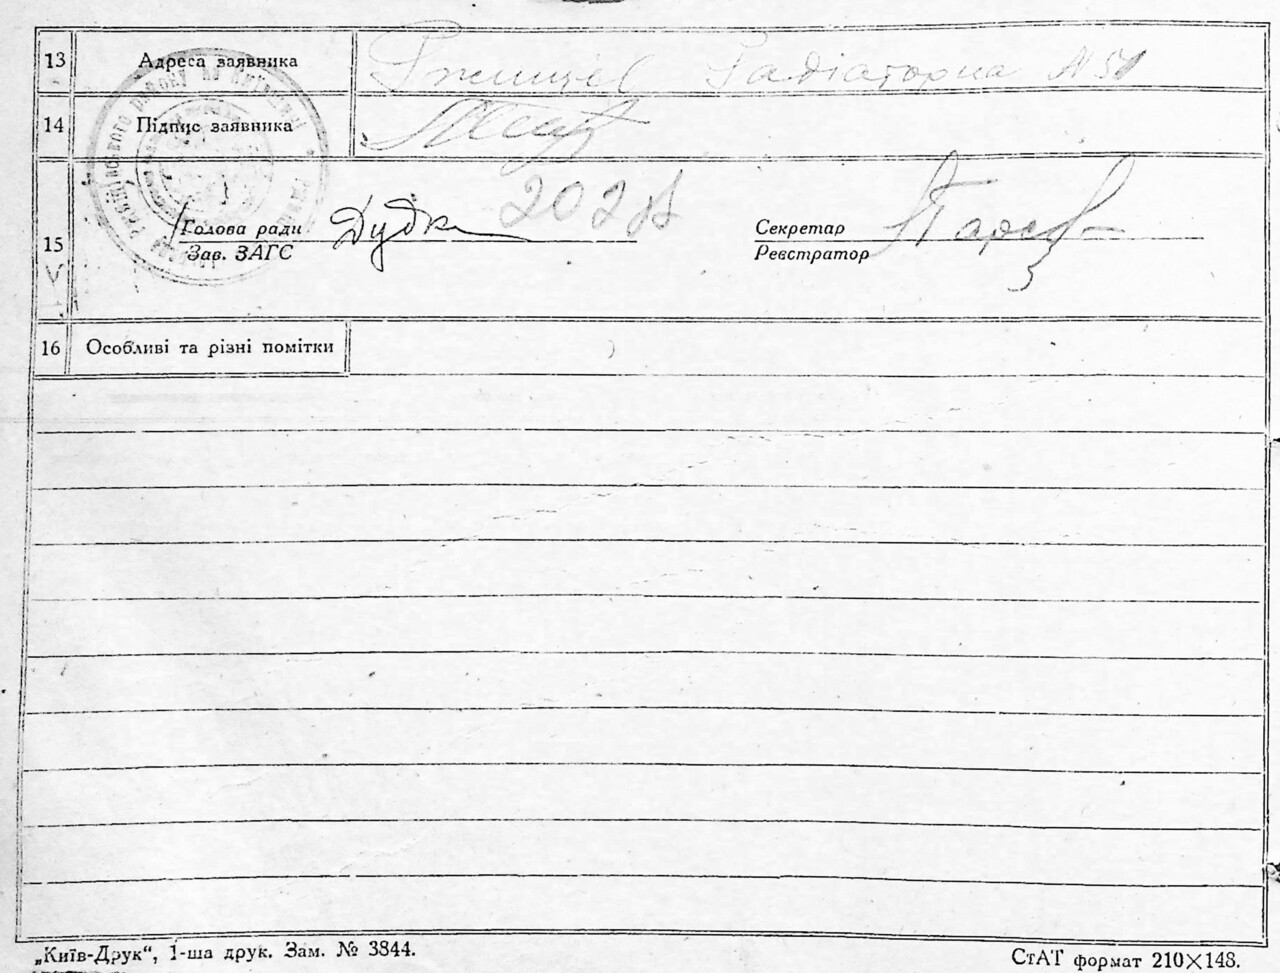 13 Адреса заявника Ржищев Радіаторна №51
14 Підпис заявника
2028
15 Голова ради Дудка Секретар
Зав. ЗАГС Реєстратор
16 Особливі та різні помітки
„Київ-Друк“, 1-ша друк. Зам. № 3844. СтАТ формат 210×148.